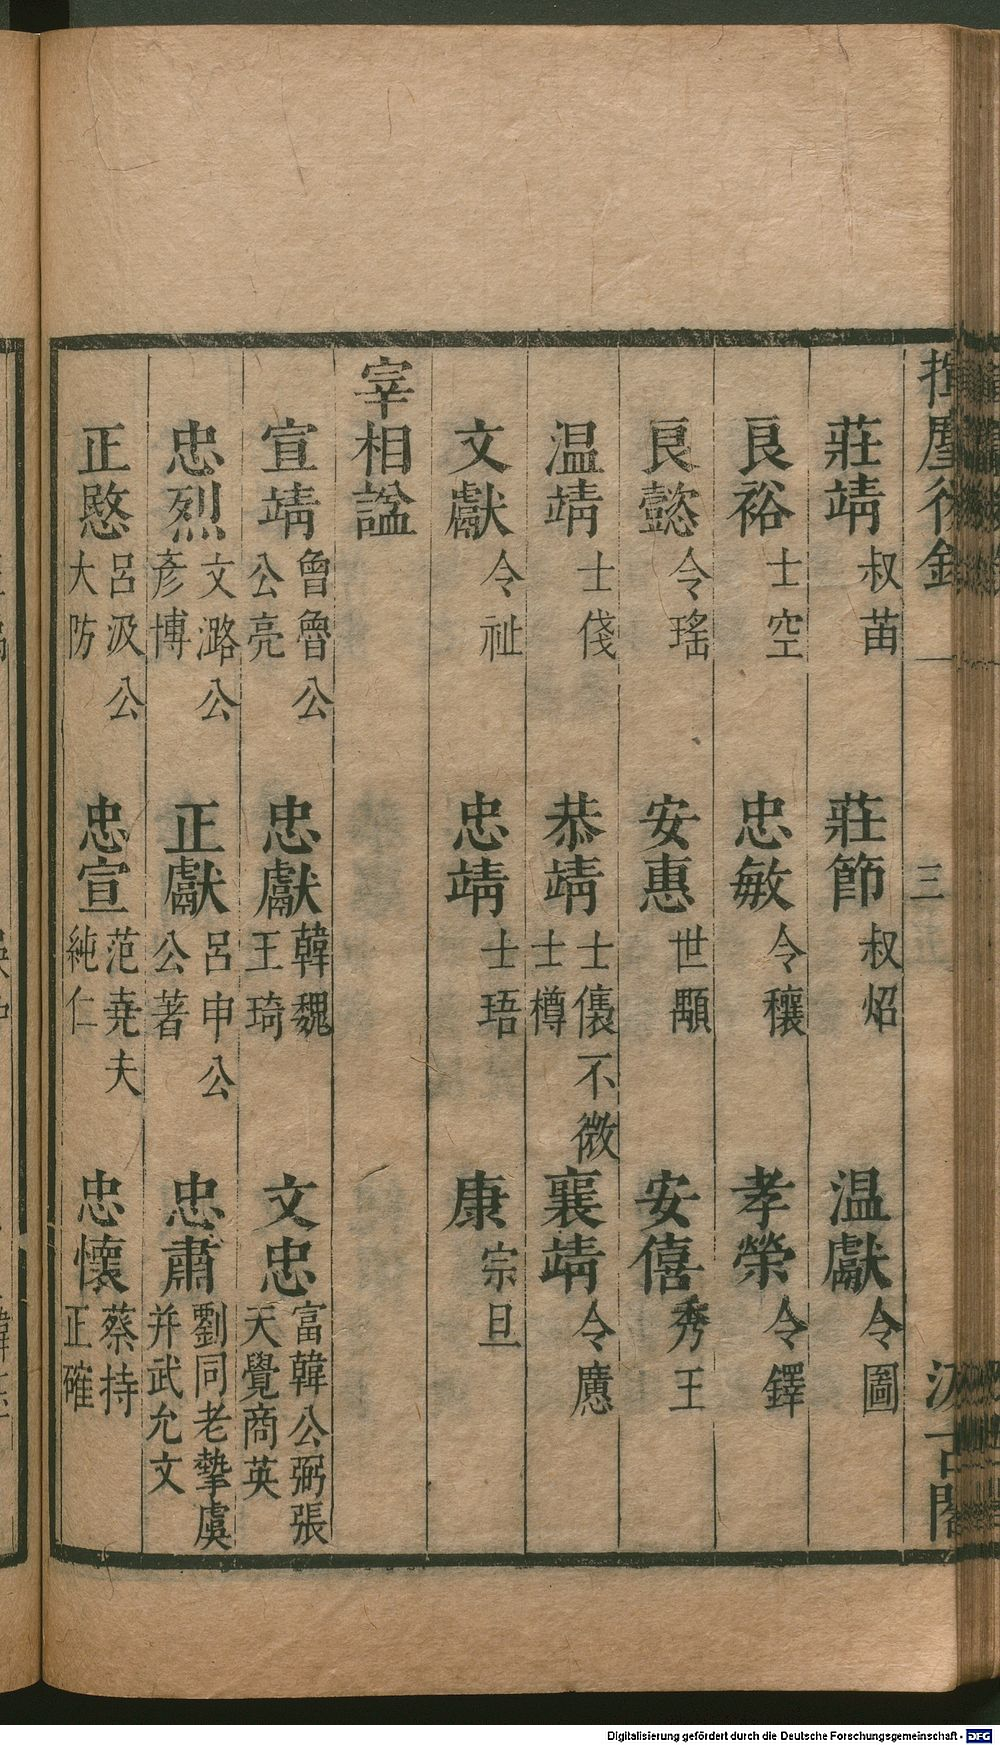 揮麈後錄 一 三 汲古閣
莊靖 叔苗 莊節 叔炤 温獻 令圖
良裕 士空 忠敏 令穰 孝榮 令鐸
良懿 令瑤 安惠 世顒 安僖 秀王
温靖 士俴 恭靖 士儴不微士樽 襄靖 令廌
文獻 令祉 忠靖 士珸 康 宗旦
宰相諡
宣靖 曾魯公公亮 忠獻 韓魏王琦 文忠 富韓公弼張天覺商英
忠烈 文潞公彥博 正獻 呂申公公著 忠肅 劉同老摯虞并武允文
正愍 呂汲公大防 忠宣 范堯夫純仁 忠懷 蔡持正確
Digitalisierung gefördert durch die Deutsche Forschungsgemeinschaft - DFG